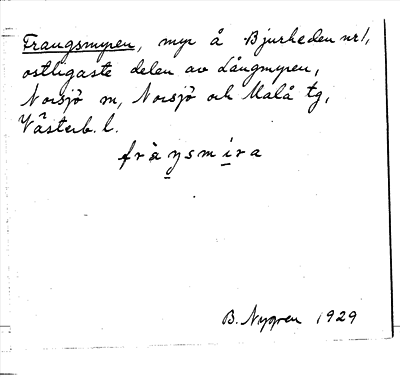 Fraugsmyren, myr å Bjurheden nr 1,
ostligaste delen av Långmyren,
Norsjö m, Norsjö och Malå tg,
Västerb. l.
B. Nygren 1929